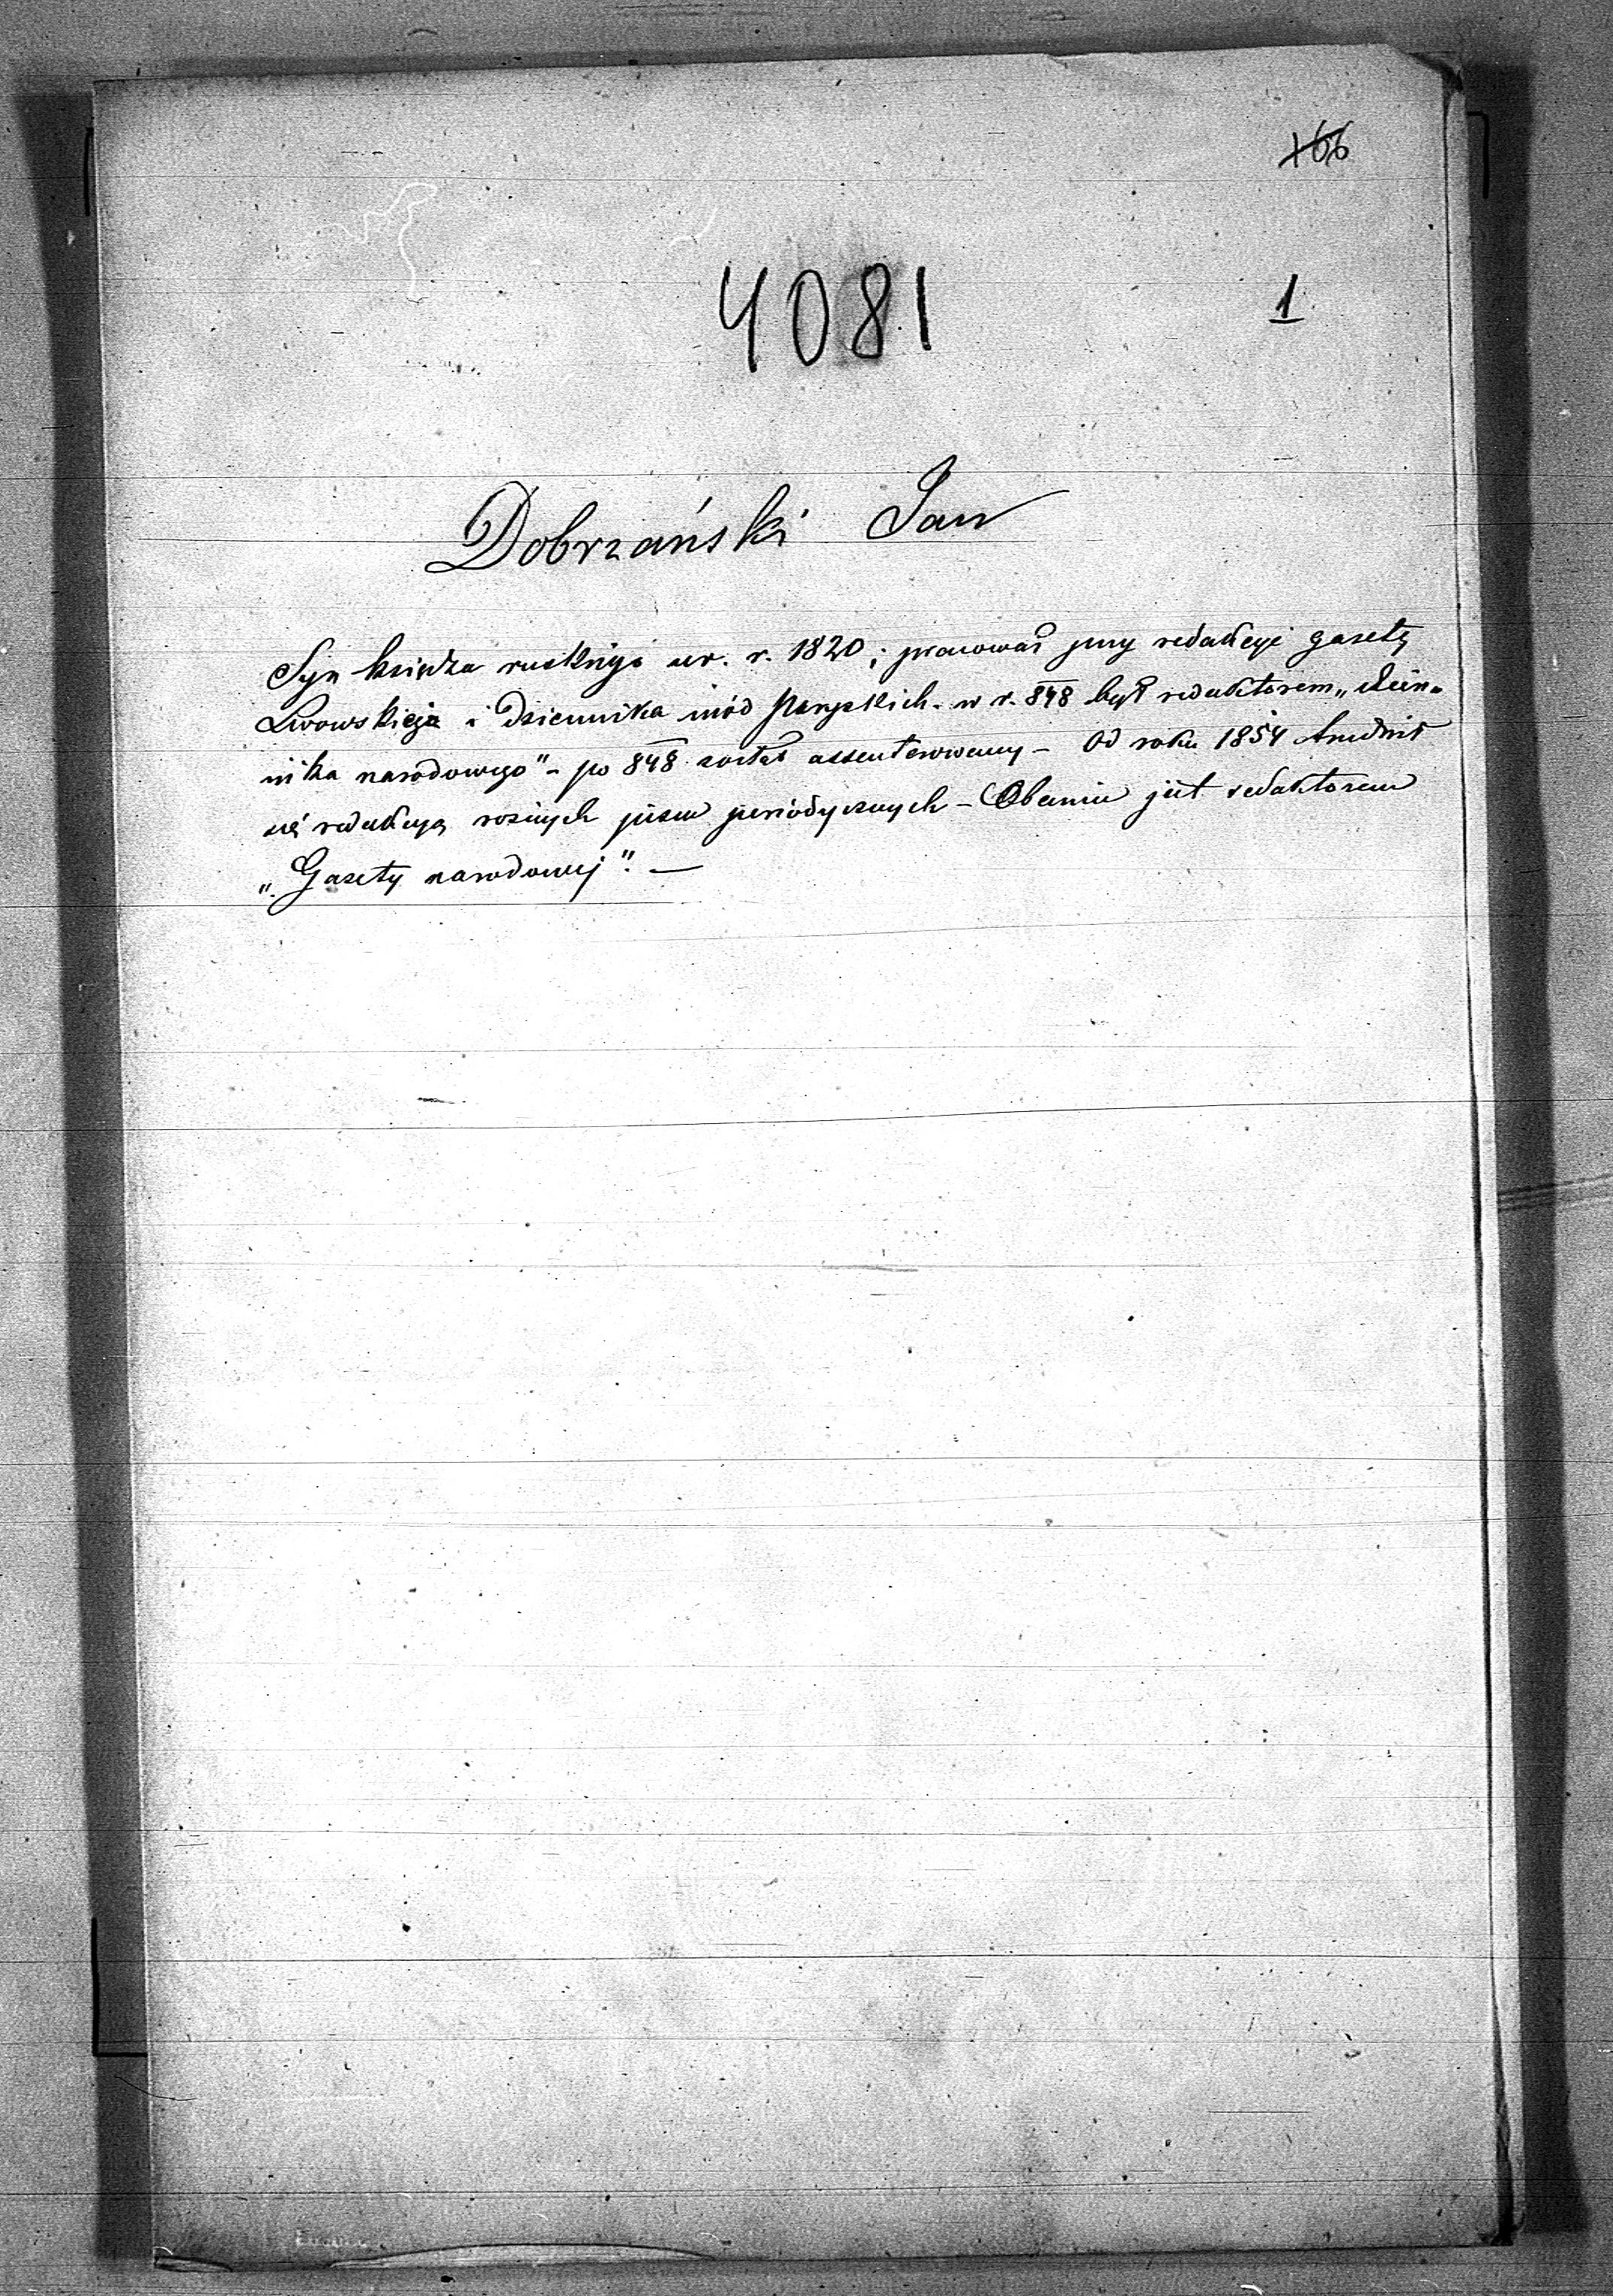 166
4081
1
Dobrzański Jan
Syn księdza ruskiego ur. r. 1820; pracował przy redakcyi gazety
Lwowskiej i Dziennika mód Paryskich. w r. 848 był redaktorem „Dzien-
nika narodowego" - po 848 został assenterowany - Od roku 1854 trudnił
się redakcyą rożnych pism periodycznych - Obecnie jest redaktorem
„Gazety narodowej". —